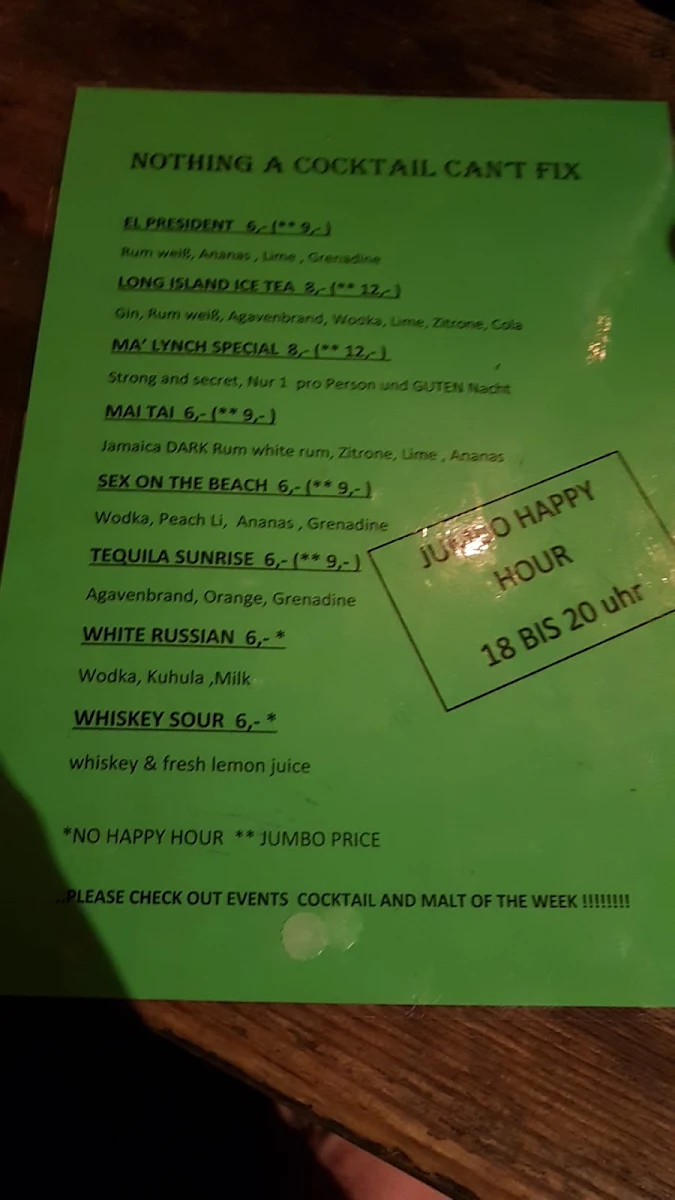 NOTHING A COCKTAIL CAN'T FIX
EL PRESIDENT 6,- (** 9,-)
Rum weiß, Ananas , Lime , Grenadine
LONG ISLAND ICE TEA 8,- (** 12,-)
Gin, Rum weiß, Agavenbrand, Wodka, Lime, Zitrone, Cola
MA' LYNCH SPECIAL 8,- (** 12,-)
Strong and secret, Nur 1 pro Person und GUTEN Nacht
MAI TAI 6,- (** 9,-)
Jamaica DARK Rum white rum, Zitrone, Lime , Ananas
SEX ON THE BEACH 6,- (** 9,-)
Wodka, Peach Li, Ananas , Grenadine
TEQUILA SUNRISE 6,- (** 9,-)
Agavenbrand, Orange, Grenadine
WHITE RUSSIAN 6,- *
Wodka, Kuhula ,Milk
WHISKEY SOUR 6,- *
whiskey & fresh lemon juice
JUMBO HAPPY
HOUR
18 BIS 20 uhr
*NO HAPPY HOUR ** JUMBO PRICE
..PLEASE CHECK OUT EVENTS COCKTAIL AND MALT OF THE WEEK !!!!!!!!